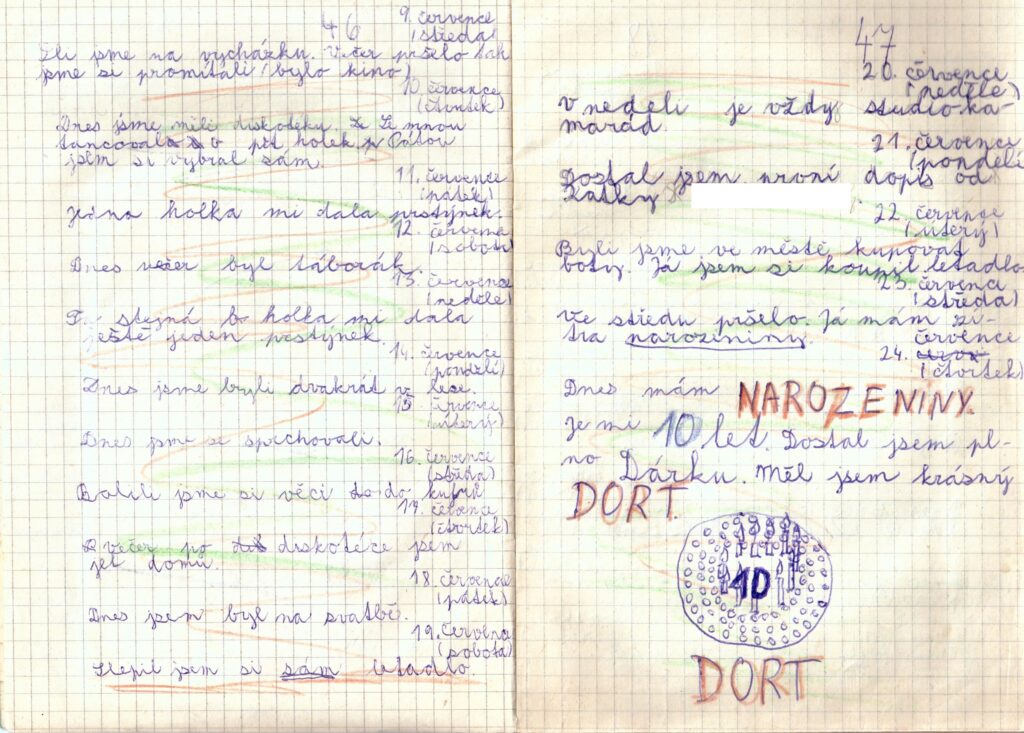 46
9. července
(středa)
Šli jsme na vycházku. Večer pršelo tak
jsme si promítali (bylo kino)
10. července
(čtvrtek)
Dnes jsme měli diskotéku. Se mnou
tancovalo pět holek. Pátou
jsem si vybral sám.
11. července
(pátek)
Jedna holka mi dala prstýnek.
12. července
(sobota)
Dnes večer byl táborák.
13. července
(neděle)
Ta stejná holka mi dala
ještě jeden prstýnek.
14. července
(pondělí)
Dnes jsme byli dvakrát v lese.
15. července
(úterý)
Dnes jsme se
16. července
(středa)
Balili jsme si věci do kufrů
17. července
(čtvrtek)
večer po diskotéce jsem
jel domů.
18. července
(pátek)
Dnes jsem byl na svatbě.
19. července
(sobota)
Slepil jsem si sám letadlo.
47
20. července
(neděle)
V neděli je vždy studio ka-
marád.
21. července
(pondělí)
Dostal jsem první dopis od
22. července
(úterý)
Byli jsme ve městě kupovat
boty. Já jsem si koupil letadlo
23. červenc
(středa)
Ve středu pršelo. Já mám zí-
tra narozeniny.
července
24.
(čtvrtek)
Dnes mám NAROZENINY.
Je mi 10 let. Dostal jsem pl-
no Dárku. Měl jsem krásný
DORT.
10
DORT